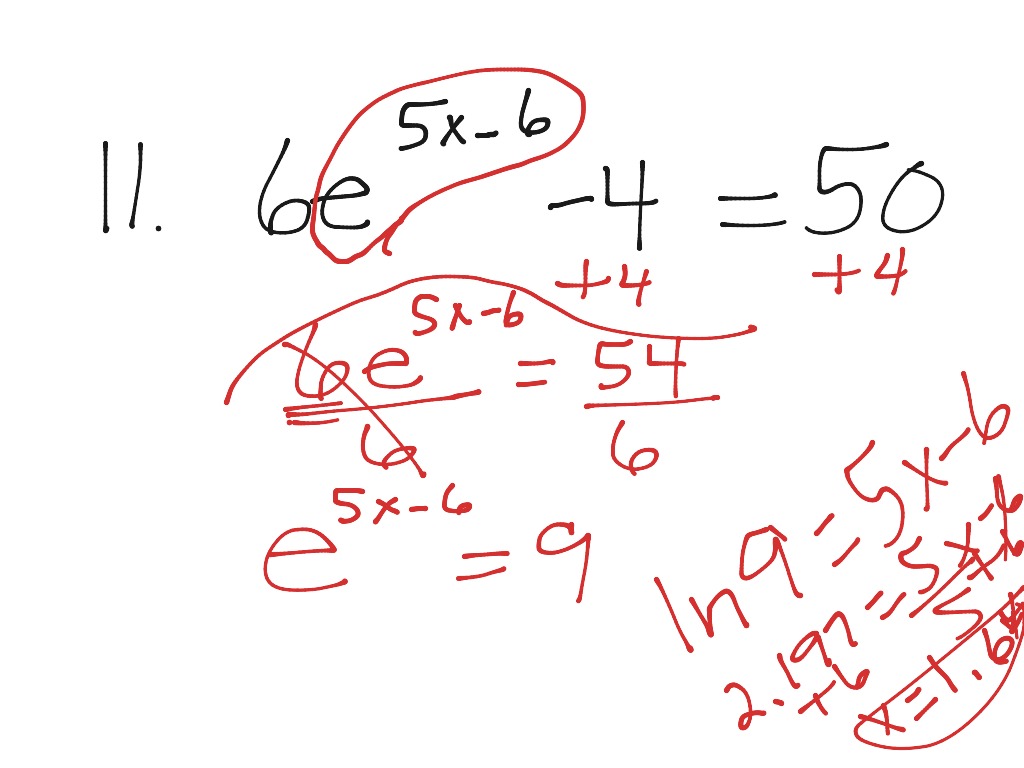 11. 6e^(5x-6) - 4 = 50
+4 +4
6e^(5x-6) = 54
6 6
e^(5x-6) = 9
ln 9 = 5x-6
2.197 = 5x-6
+6
x=1.6